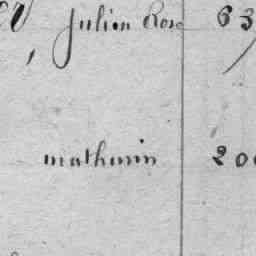 julien Rose 63
mathurin 200